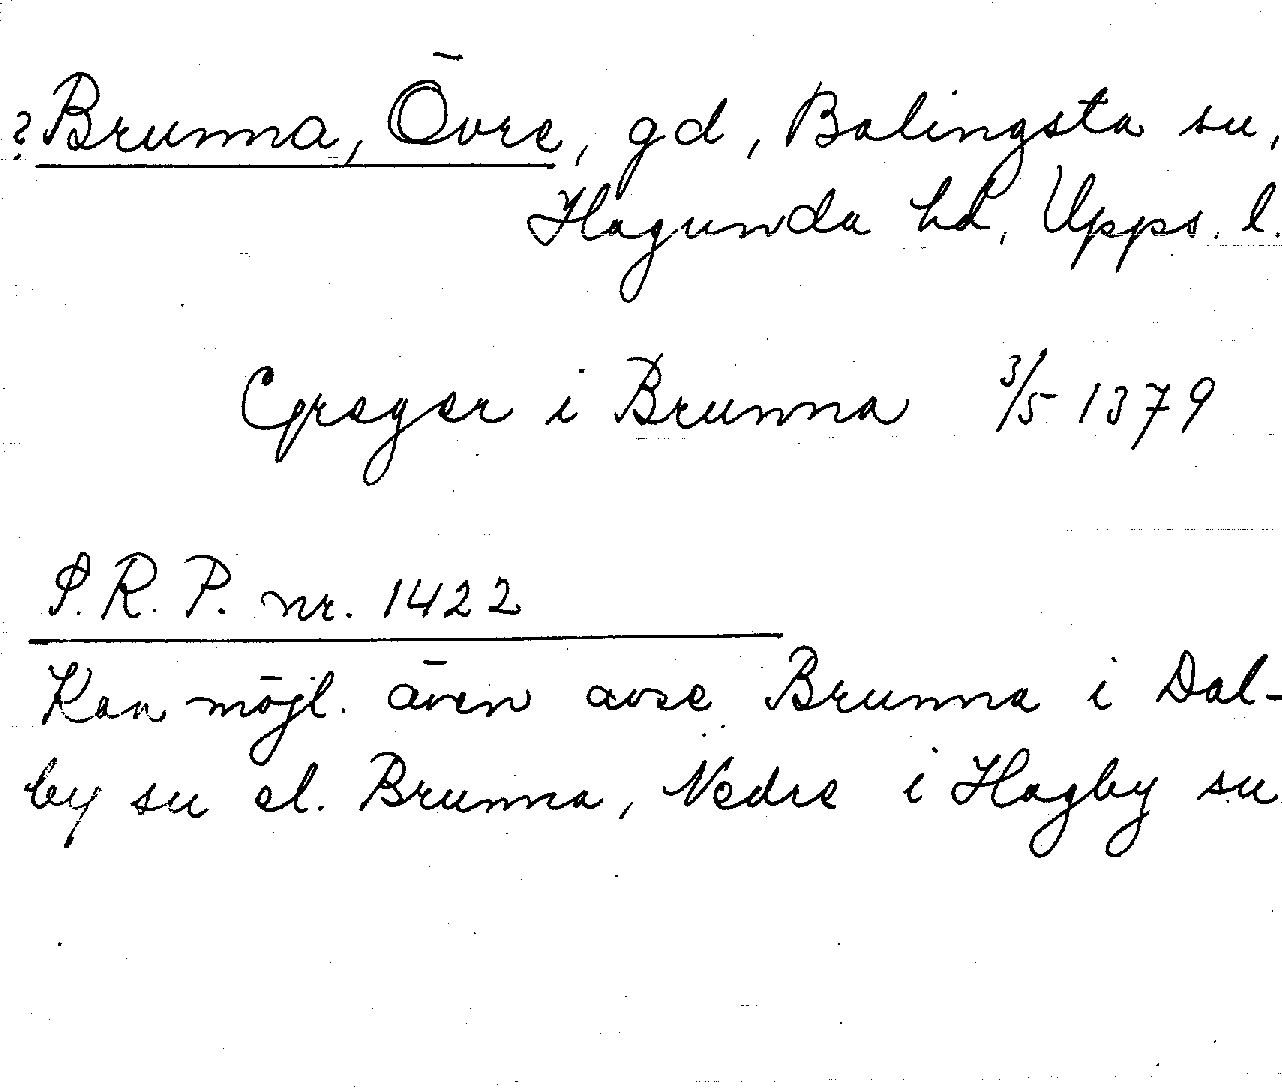 ? Brunna, Övre, gd, Balingsta sn,
Hagunda hd, Upps. l.
Greger i Brunna 3/5 1379
S.R.P. nr. 1422
Kan möjl. även avse Brunna i Dal-
by sn el. Brunna, Nedre i Hagby sn